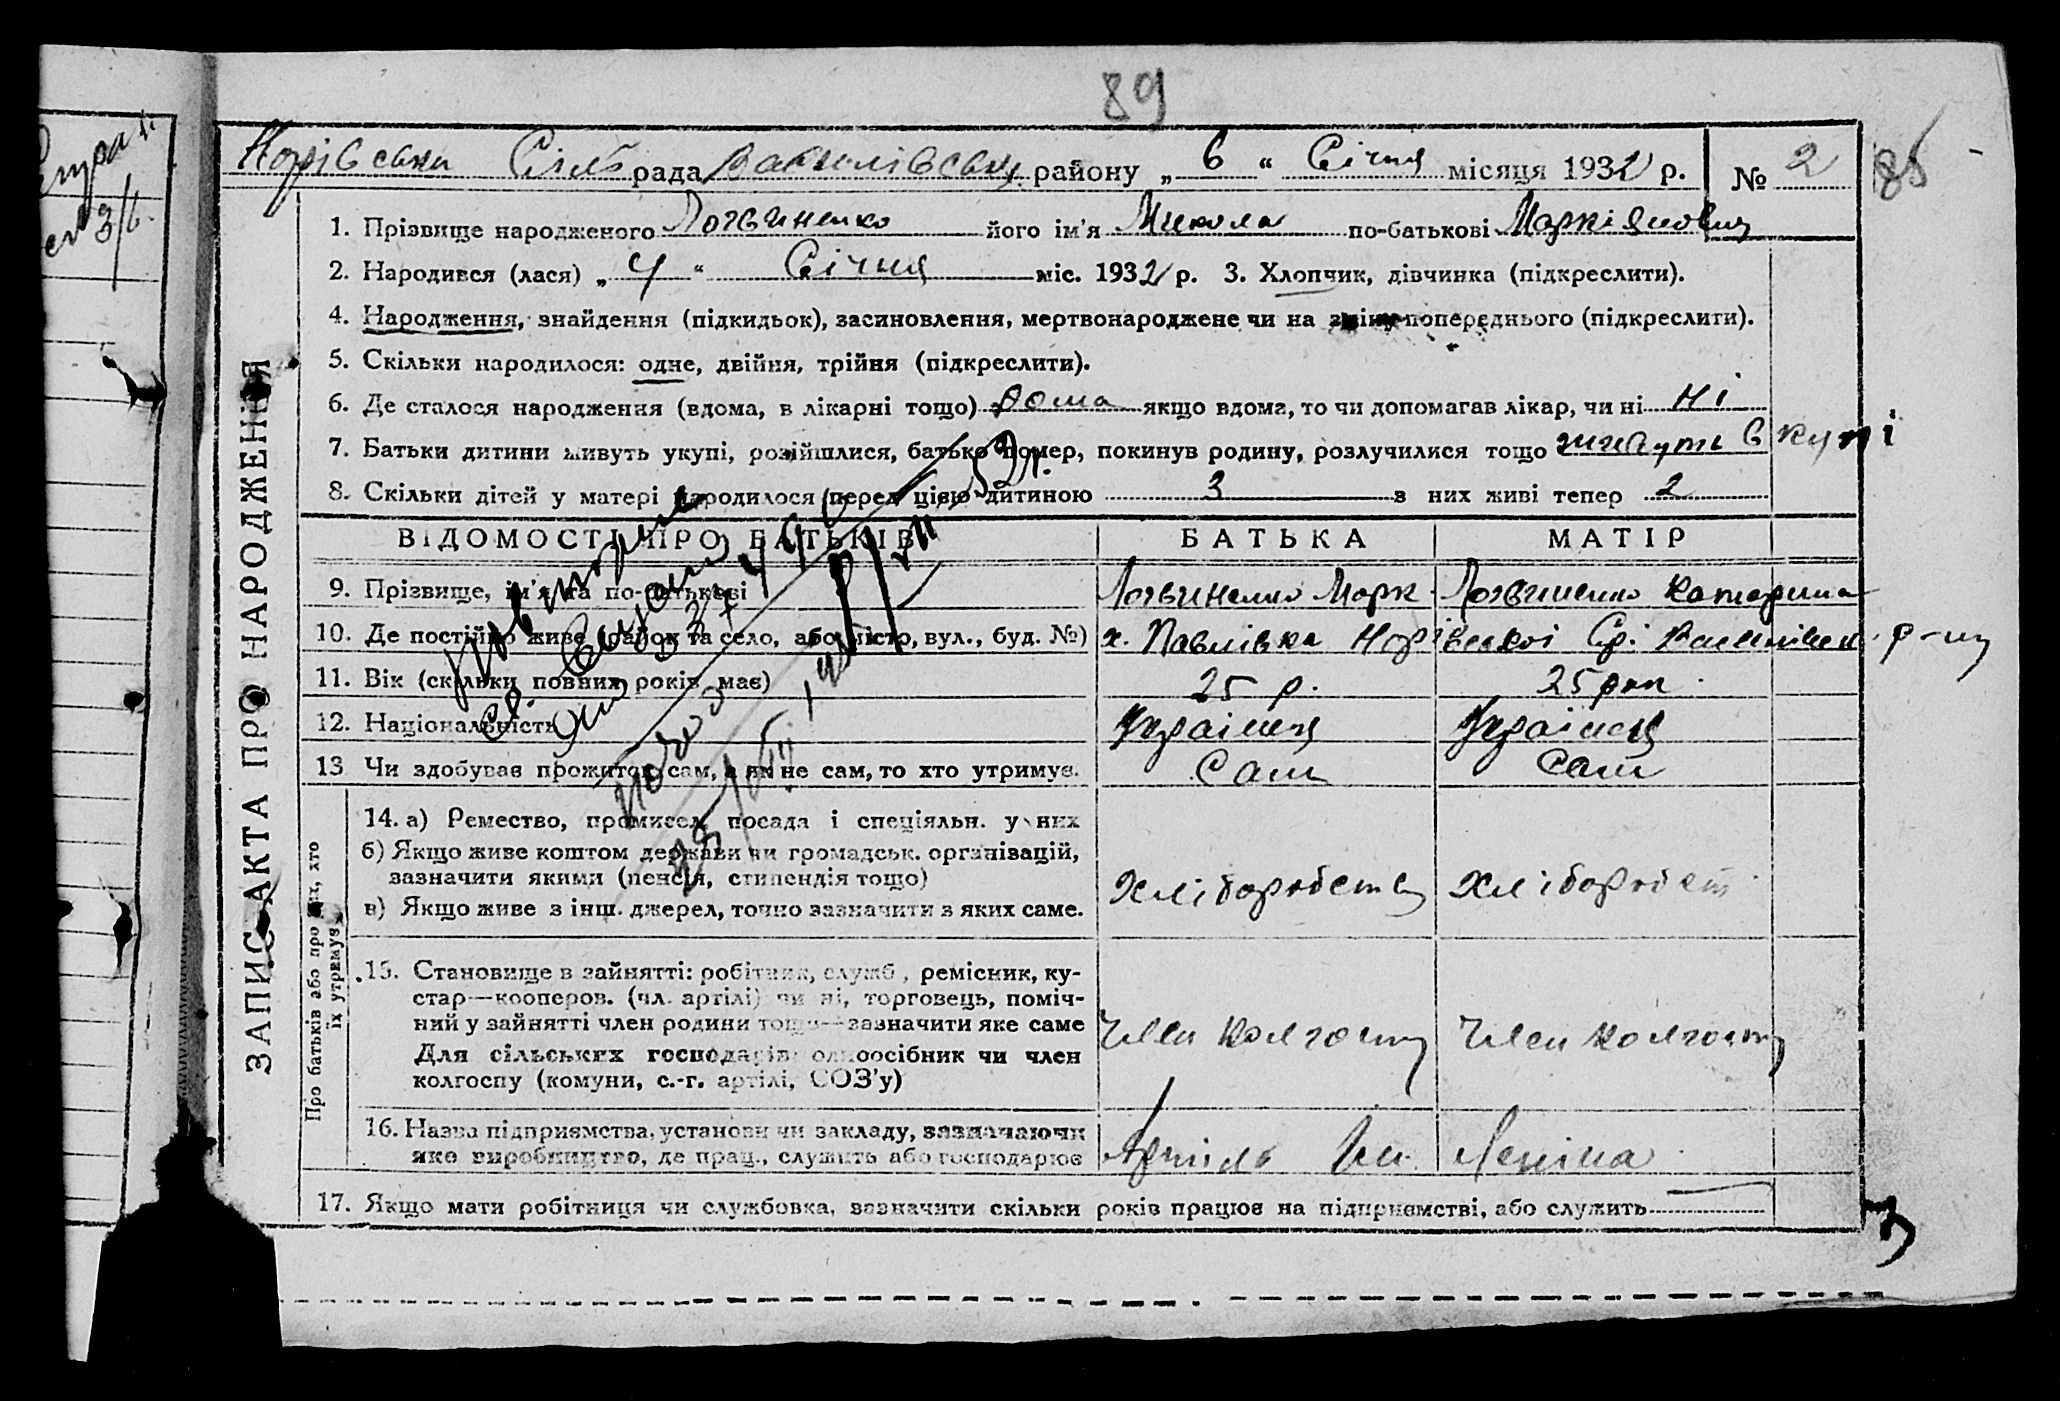 89
Норівська Сільрада Василівськ району „ 6 “ Січня місяця 1932 р. № 2
1. Прізвище народженого Логвиненко його ім'я Микола по-батькові Маркіянович
2. Народився (лася) „ 4 “ Січня міс. 1932 р. 3. Хлопчик, дівчинка (підкреслити).
4. Народження, знайдення (підкидьок), засиновлення, мертвонароджене чи на зміну попереднього (підкреслити).
5. Скільки народилося: одне, двійня, трійня (підкреслити).
6. Де сталося народження (вдома, в лікарні тощо) дома якщо вдома, то чи допомагав лікар, чи ні ні
7. Батьки дитини живуть укупі, розійшлися, батько помер, покинув родину, розлучилися тощо живуть в купі
8. Скільки дітей у матері народилося перед цією дитиною 3 з них живі тепер 2
ВІДОМОСТІ ПРО БАТЬКІВ БАТЬКА МАТІР
9. Прізвище, ім'я та по-батькові Логвиненко Марк Логвиненко Катерина
10. Де постійно живе (район та село, або місто, вул., буд. №) х. Павлівка Норівської Ср.
11. Вік (скільки повних років має) 25 р. 25 рок
12. Національність Українец Українец
13 Чи здобував прожиток сам, а як не сам, то хто утримує. Сам Сам
Про батьків або про них, хто їх утримує
14. а) Ремество, промисел, посада і спеціяльн. у них
б) Якщо живе коштом держави чи громадськ. організацій,
зазначити якими (пенсія, стипендія тощо)
в) Якщо живе з інш. джерел, точно зазначити з яких саме.
Хліборобство Хліборобст
15. Становище в зайнятті: робітник, служб., ремісник, ку-
стар—кооперов. (чл. артілі) чи ні, торговець, поміч-
ний у зайнятті член родини тощо—зазначити яке саме
Для сільських господарів: одноосібник чи член
колгоспу (комуни, с.-г. артілі, СОЗ'у)
Член колгоспу Член колгоспу
16. Назва підприємства, установи чи закладу, зазначаючи
яке виробництво, де прац., служить або господарює
Артіль Ім. Леніна
17. Якщо мати робітниця чи службовка, зазначити скільки років працює на підприємстві, або служить
ЗАПИС АКТА ПРО НАРОДЖЕННЯ
Повторне